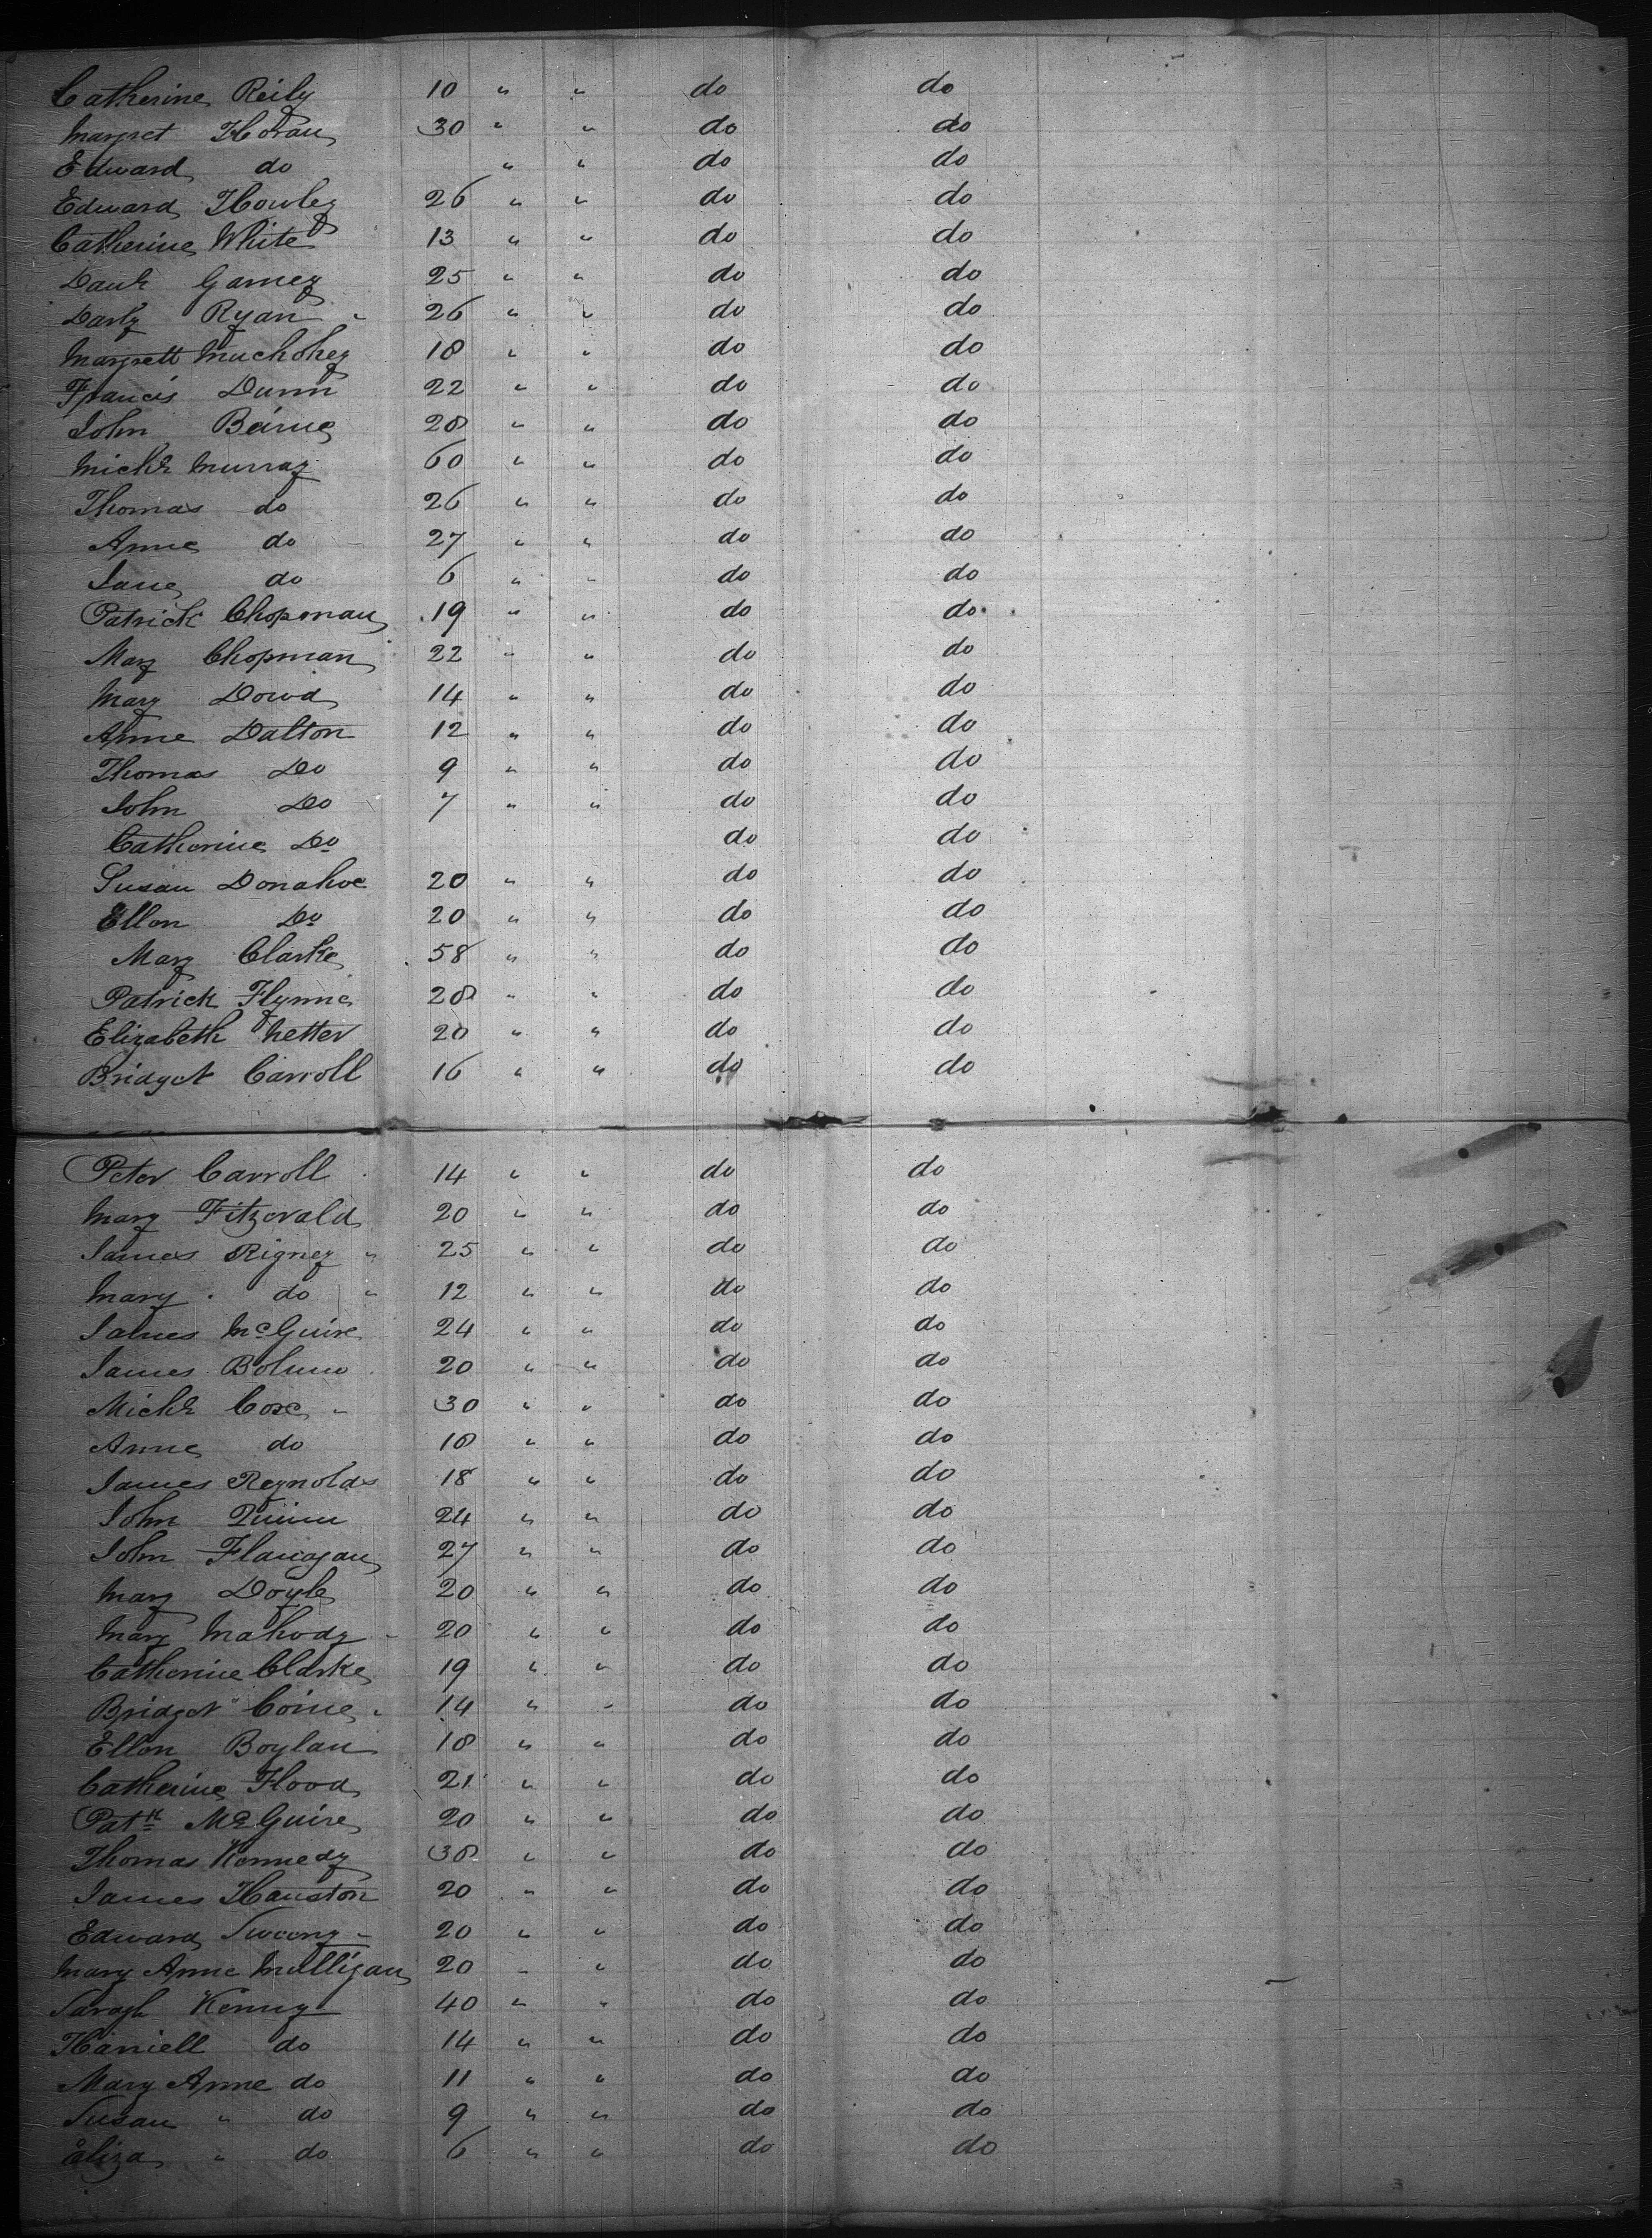 Catherine Reily 10 " " do do
Margret Horan 30 " " do do
Edward do " " do do
Edward Howley 26 " " do do
Catherine White 13 " " do do
Danl Garney 25 " " do do
Darby Ryan " 26 " " do do
Margrett Muchohey 18 " " do do
Francis Dunn 22 " " do do
John Beirne 28 " " do do
Michl Murray 60 " " do do
Thomas do 26 " " do do
Anne do 27 " " do do
Jane do 6 " " do do
Patrick Chopman 19 " " do do
Mary Chopman 22 " " do do
Mary Dowd 14 " " do do
Anne Dalton 12 " " do do
Thomas Do 9 " " do do
John Do 7 " " do do
Catherine Do do do
Susan Donahoe 20 " " do do
Ellen Do 20 " " do do
Mary Clarke 58 " " do do
Patrick Flynne 28 " " do do
Elizabeth Netter 20 " " do do
Bridget Carroll 16 " " do do
Peter Carroll 14 " " do do
Mary Fitzerald 20 " " do do
James Rigney " 25 " " do do
Mary do " 12 " " do do
James McGuire 24 " " do do
James 20 " " do do
Michl Cox " 30 " " do do
Anne do 18 " " do do
James Reynolds 18 " " do do
John Quinn 24 " " do do
John Flanagan 27 " " do do
Mary Doyle 20 " " do do
Mary Mahody 20 " " do do
Catherine Clarke 19 " " do do
Bridget Coine " 14 " " do do
Ellen Boylan 18 " " do do
Catherine Flood 21 " " do do
Patk McGuire 20 " " do do
Thomas Kennedy 38 " " do do
James Hauston 20 " " do do
Edward Sweeny 20 " " do do
Mary Anne Mulligan 20 " " do do
Saragh Kenny 40 " " do do
Harriell do 14 " " do do
Mary Anne do 11 " " do do
Susan " do 9 " " do do
Eliza " do 6 " " do do